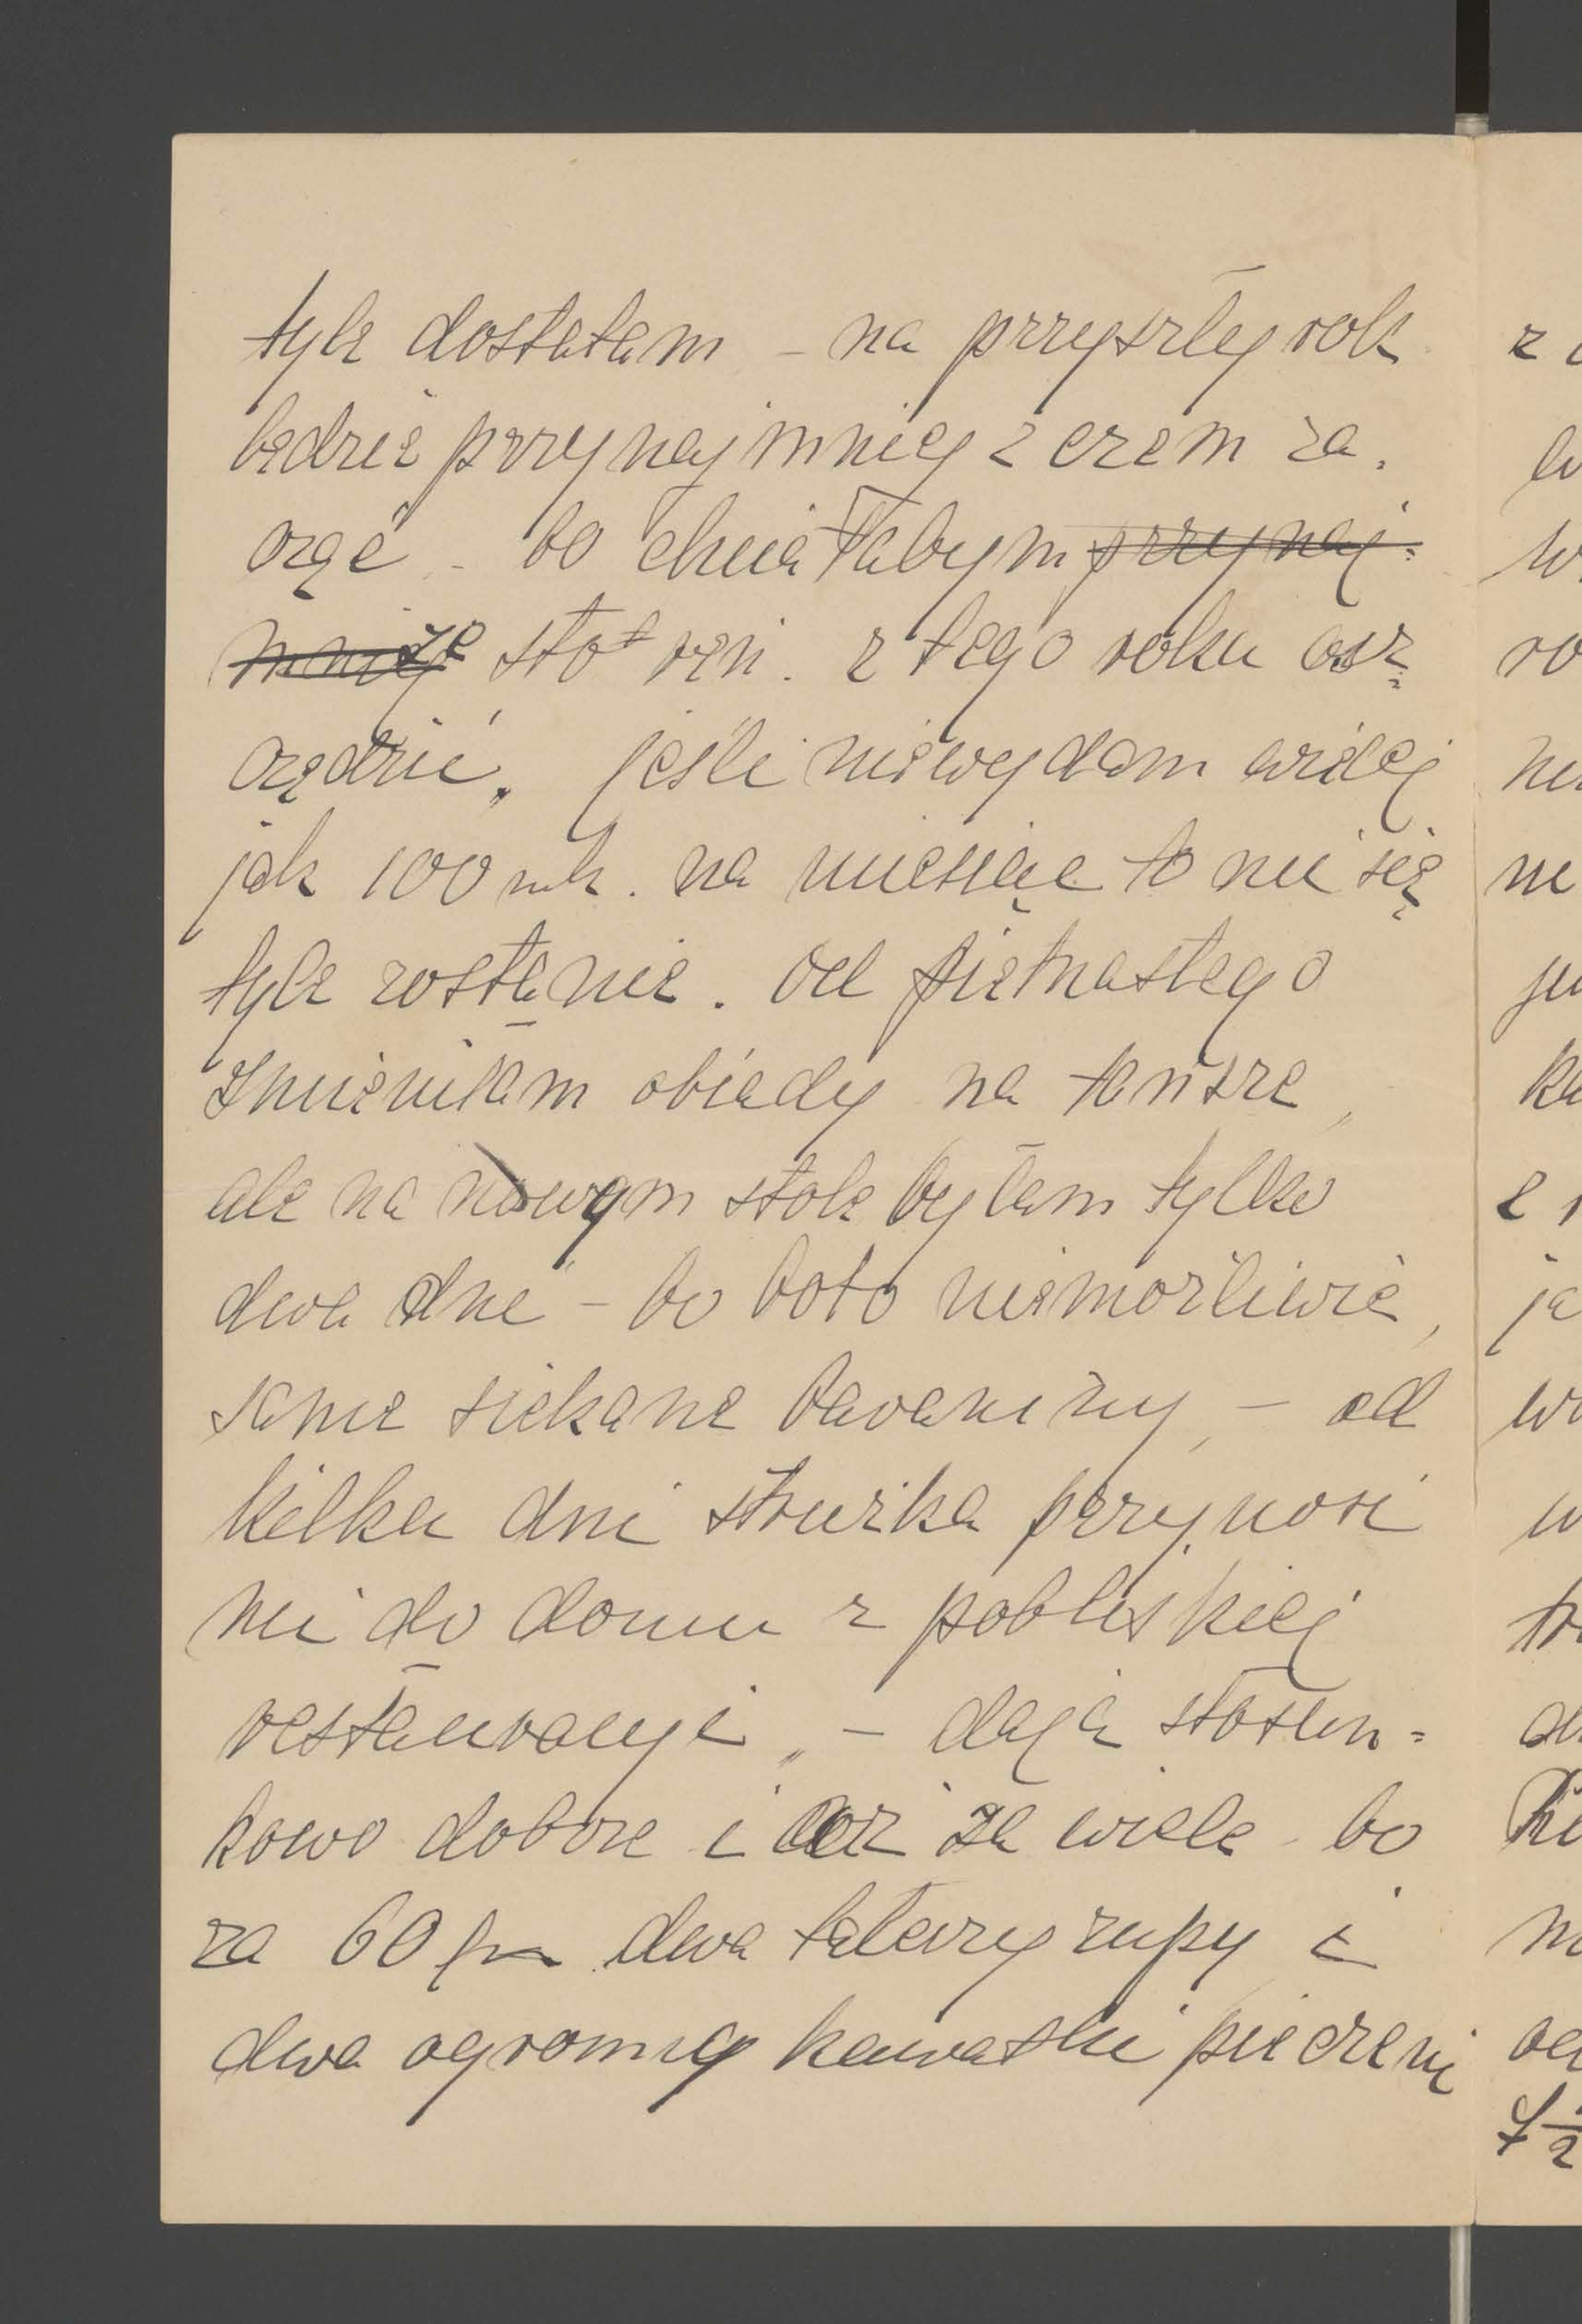 tyle dostałam – na przyszły rok
będzie przynajmniej z czem za.
cząć – bo chciałabym ~~przynaj=~~
~~mniej~~ że sto ren. z tego roku osz=
czędzić, jeśli niewydam więcej
jak 100 mk. na miesiąc to mi się
tyle zostanie. Od piętnastego
zmieniłam obiady na tańsze,
ale na nowym stole byłam tylko
dwa dni – bo było niemożliwie,
same siekane baraniny, – od
kilku dni stróżka przynosi
mi do domu z pobliskiej
restauracyi, – dają stosun=
kowo dobrze i aż za wiele – bo
za 60 fn dwa talerzy zupy i
dwa ogromny kawałki pieczeni